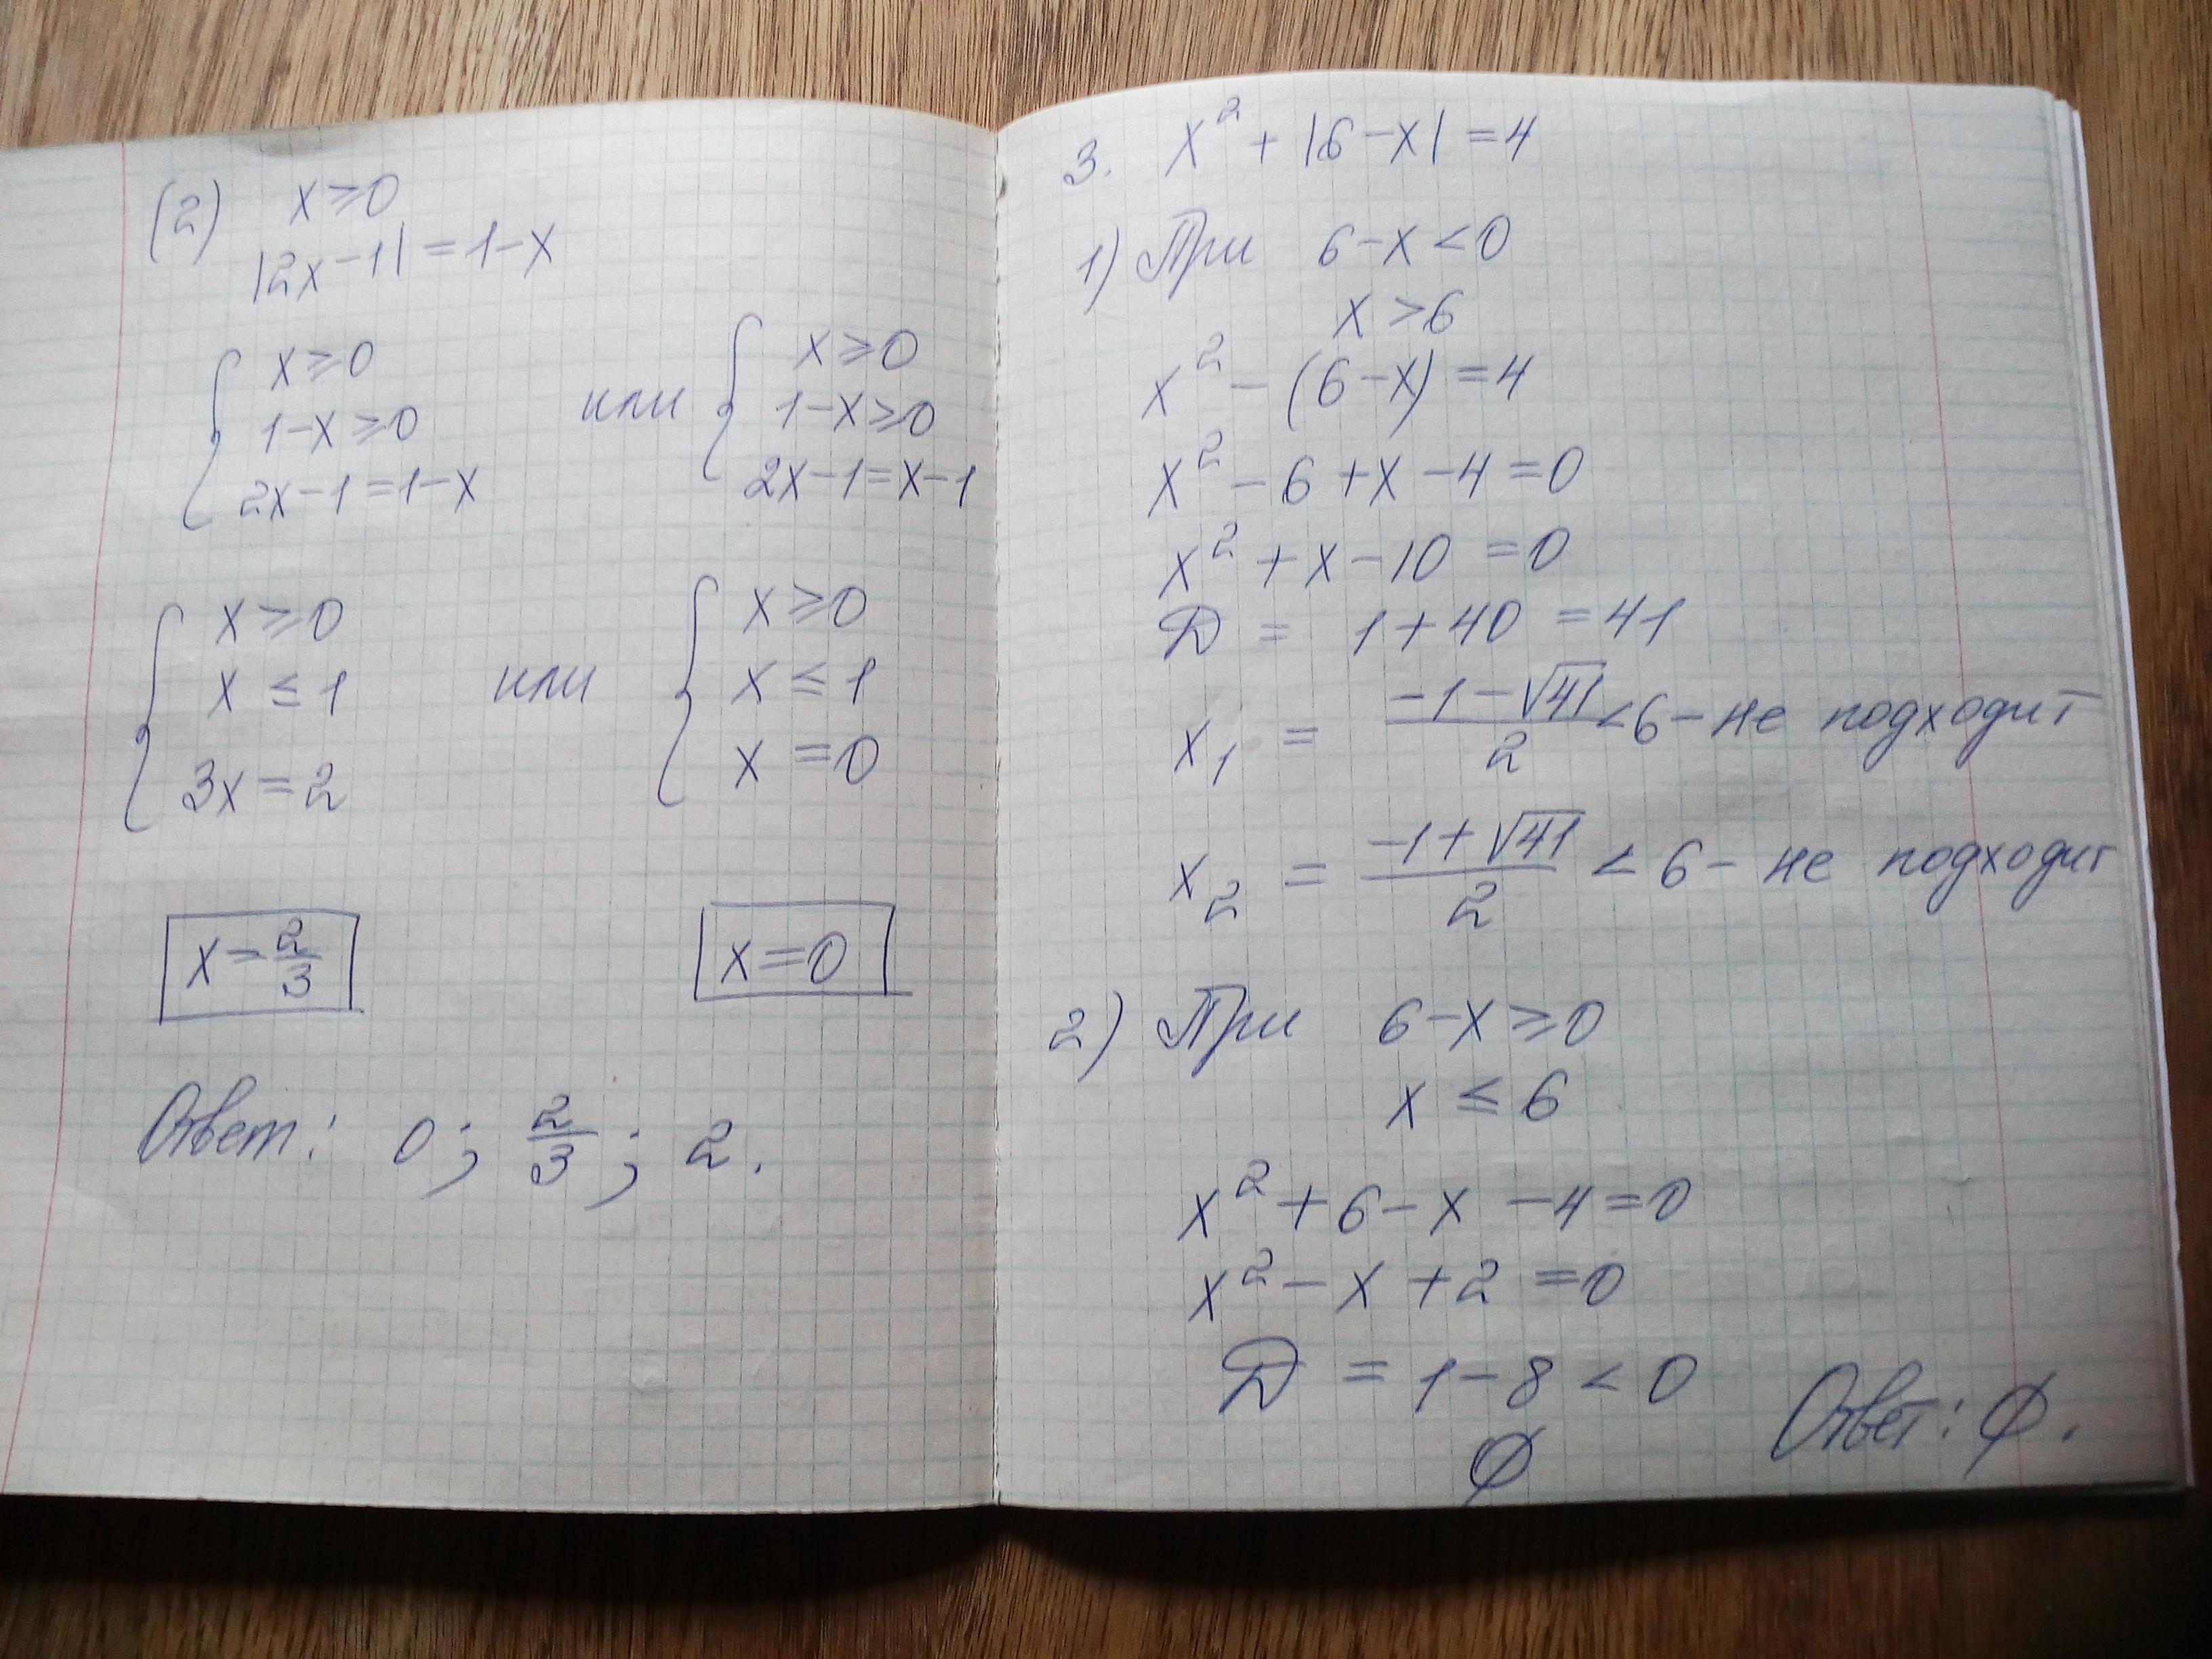 (2) x ⩾ 0
|2x-1| = 1-x
{ x ⩾ 0
1-x ⩾ 0
2x-1 = 1-x
или
{ x ⩾ 0
1-x ⩾ 0
2x-1 = x-1
{ x ⩾ 0
x ≤ 1
3x = 2
или
{ x ⩾ 0
x ≤ 1
x = 0
x = 2/3
x = 0
Ответ: 0; 2/3; 2.
3. x² + |6-x| = 4
1) При 6-x < 0
x > 6
x² - (6-x) = 4
x² - 6 + x - 4 = 0
x² + x - 10 = 0
D = 1 + 40 = 41
x₁ = (-1-√41)/2 < 6 - не подходит
x₂ = (-1+√41)/2 < 6 - не подходит
2) При 6-x ⩾ 0
x ≤ 6
x² + 6 - x - 4 = 0
x² - x + 2 = 0
D = 1 - 8 < 0
∅
Ответ: ∅.